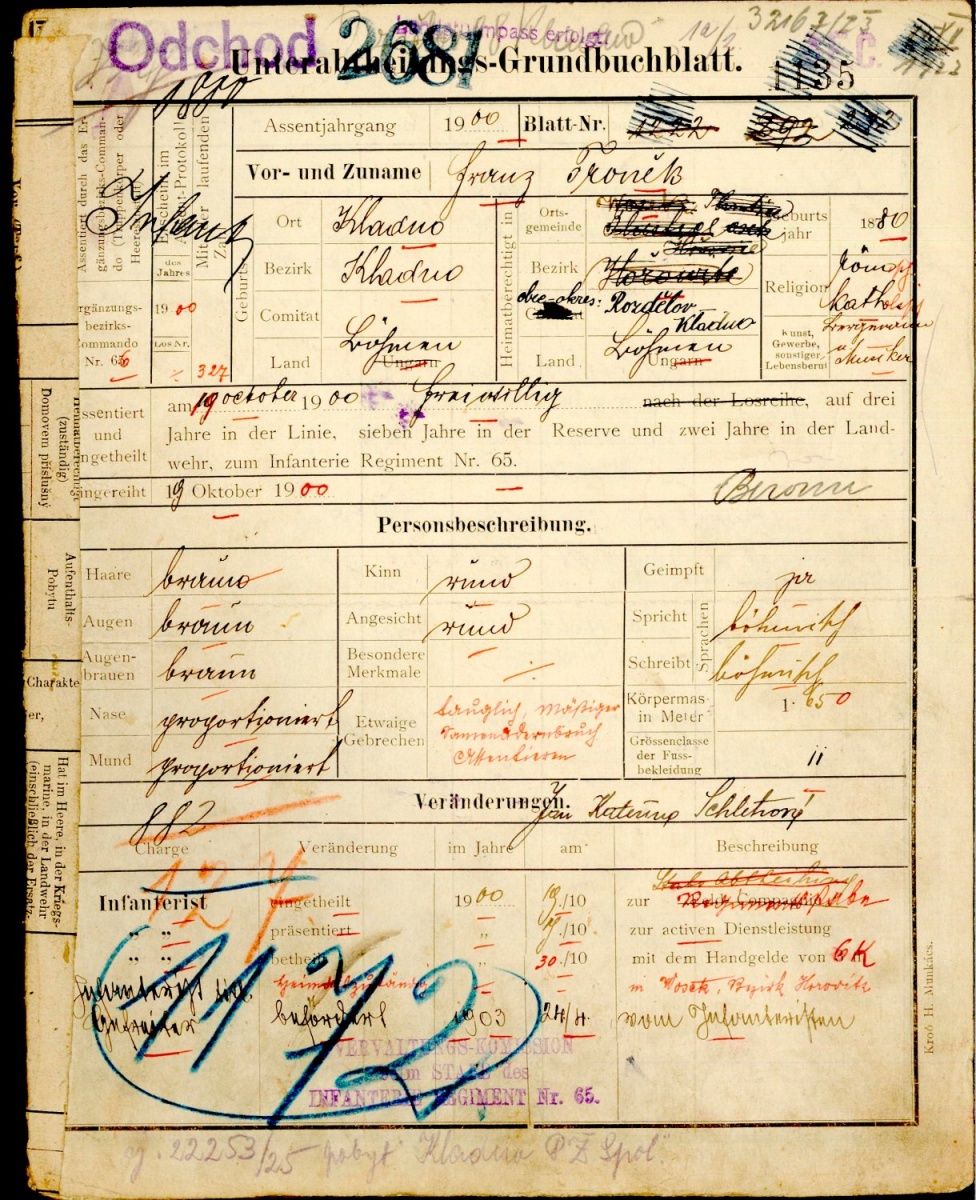 Odchod 2681 Landsturmpass erfolgt 12/2 32163/23
Unterabtheilungs-Grundbuchblatt.
1135
Assentjahrgang 1900 Blatt-Nr. 1222 392
Vor- und Zuname Franz Troněk
Assentiert durch das Ergänzungsbezirks-Commando (Truppenkörper oder Heeres
Infant
des Jahres
1900
Los Nr.
327
Ergänzungs-
bezirks-
Commando
Nr. 65
Geburts
Ort Kladno
Bezirk Kladno
Comitat
Land Böhmen Ungarn
Heimatberechtigt in
Ortsgemeinde
Bezirk Hořowitz
obec-okres: Rozdělov
Kladno
Land Böhmen Ungarn
Geburtsjahr 1880
Religion römisch katholisch
Kunst, Gewerbe, sonstiger Lebensberuf Bergmann u Musiker
Assentiert und eingetheilt
am 19 october 1900 freiwillig nach der Losreihe, auf drei
Jahre in der Linie, sieben Jahre in der Reserve und zwei Jahre in der Land-
wehr, zum Infanterie Regiment Nr. 65.
Eingereiht 19 Oktober 1900 Beroun
Personsbeschreibung.
Haare braun Kinn rund Geimpft ja
Augen braun Angesicht rund Spricht böhmisch
Sprachen
Augenbrauen braun Besondere Merkmale ./. Schreibt böhmisch
Nase proportioniert Etwaige Gebrechen tauglich, mäßiger
Assentieren
Mund proportioniert
Körpermass in Meter 1·650
Grössenclasse der Fussbekleidung ii
882 Veränderungen.
Charge Veränderung im Jahre am Beschreibung
Infanterist eingetheilt 1900 19/10 zur Stabs Abtheilung
„ „ präsentiert „ 19/10 zur activen Dienstleistung
„ „ betheilt „ 30/10 mit dem Handgelde von 6K
heimatzuständig in Wosek, Bezirk Horovitz
Gefreiter befördert 1903 24/4 vom Infanteristen
127
1172
VERVALTUNGS-KOMISSION
beim STABE des
INFANTERIE REGIMENT Nr. 65.
Kroó H. Munkács.
Heimatberechtigt
(zuständig)
Domovem příslušný
Aufenthalts-
Pobytu
Charakter
Hat im Heere, in der Kriegs-
marine, in der Landwehr
(einschließlich der Ersatz-
22253/25 pobyt Kladno